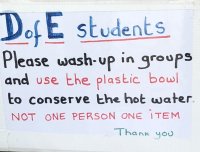 DofE students
Please wash-up in groups
and use the plastic bowl
to conserve the hot water.
NOT ONE PERSON ONE iTEM
Thank you